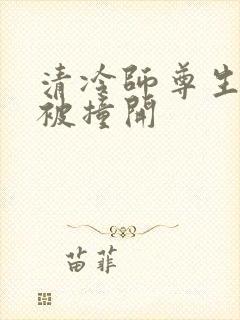 清冷师尊生
被撞開
苗菲